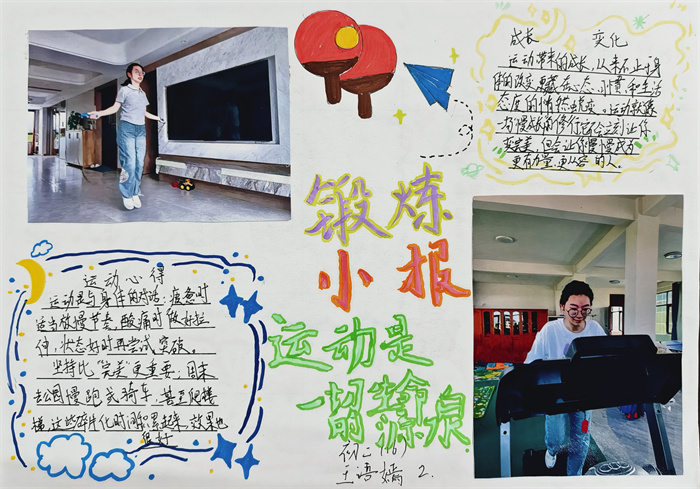 成长 变化
运动带来的成长,从来不止于身
体的改变,更藏在心态、习惯和生活
态度的悄然蜕变。运动就像
一场慢放的修行,不会立刻让你
变完美,但会让你慢慢成为
更有力量、更从容的人。
锻炼
小报
运动心得
运动是与身体的对话:疲惫时
适当放慢节奏,酸痛时做好拉
伸,状态好时再尝试突破。
坚持比“完美”更重要:周末
去公园慢跑或骑车,甚至爬楼
梯,这些碎片化时间积累起来,效果也
很好
运动是
一切生命
的源泉
初二(16)
王语嫣 2.